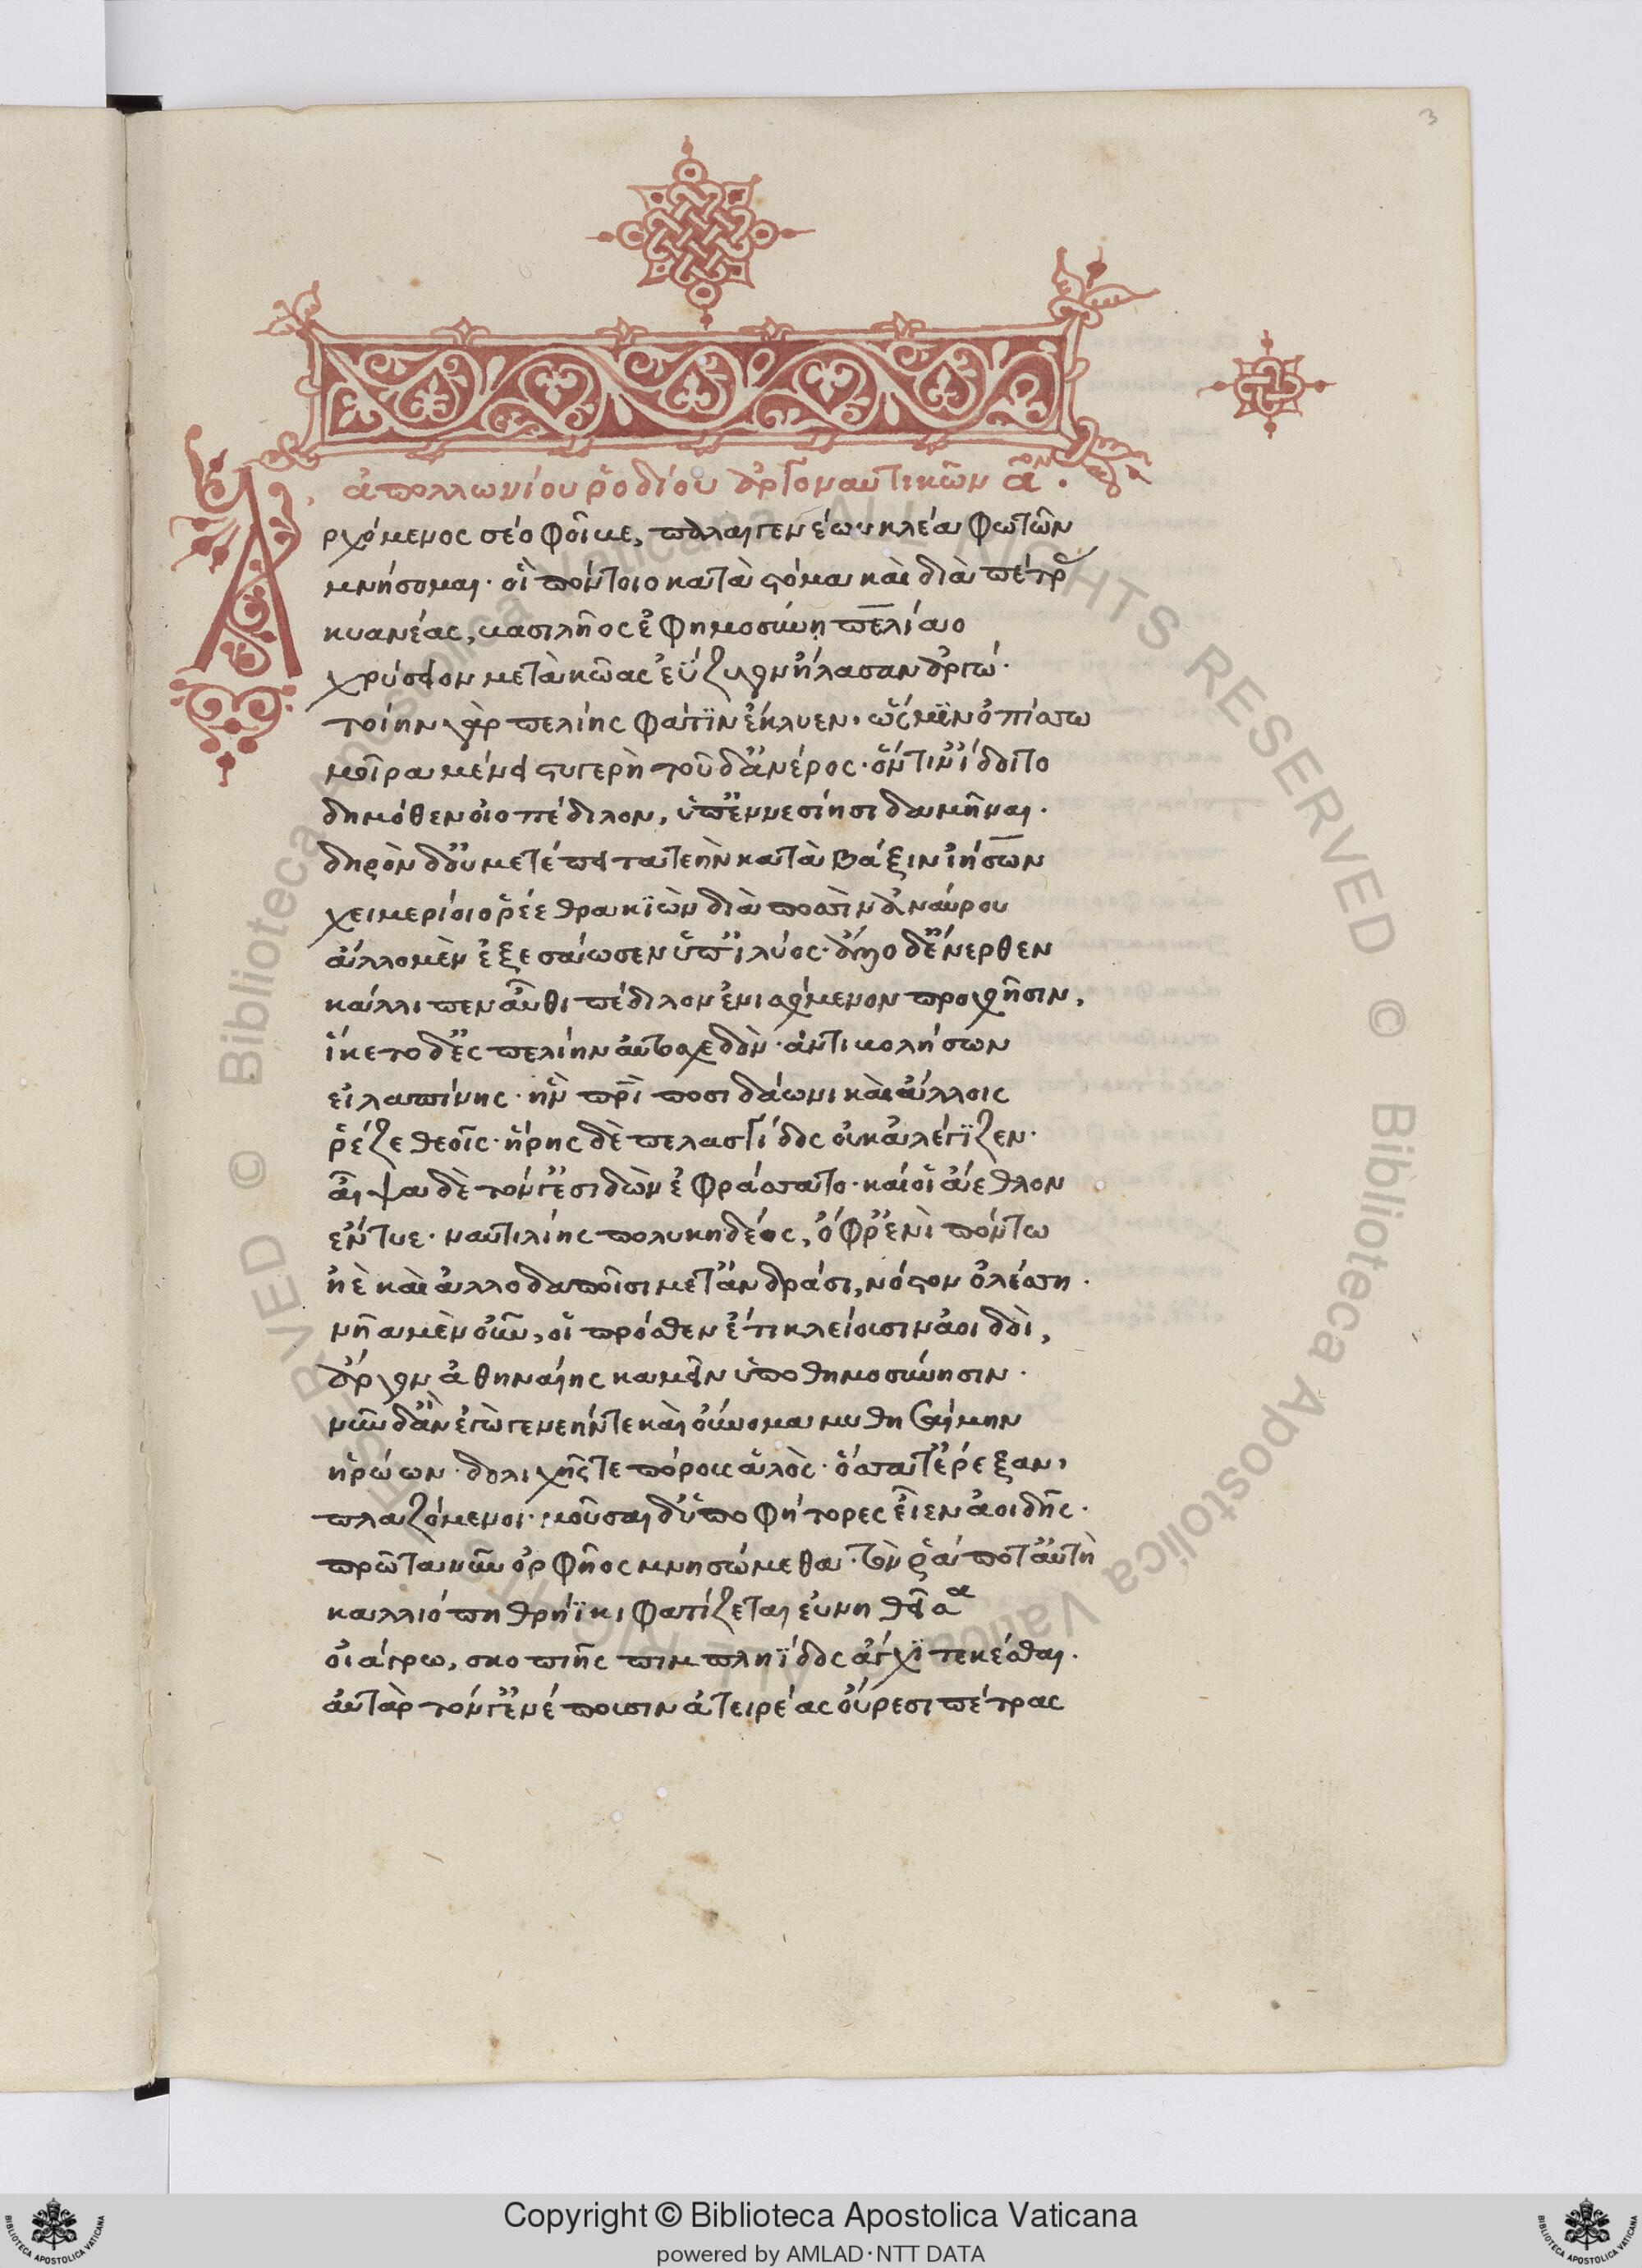 3
ἀπολλωνίου ῥοδίου ἀργοναυτικῶν α̅ον.
Αρχόμενος σέο φοῖβε, παλαιγενέων κλέα φωτῶν
μνήσομαι· οἳ πόντοιο κατὰ στόμα καὶ διὰ πέτρ
κυανέας, βασιλῆος ἐφημοσύνῃ πελίαο
χρύσειον μετὰ κῶας ἐΰζυγον ἤλασαν ἀργώ·
τοίην γὰρ πελίης φάτϊν ἔκλυεν, ὥς μϊν ὀπίσσω
μοῖρα μένει στυγερὴ τοῦδ' ἀνέρος· ὅντιν' ἴδοιτο
δημόθεν οἰοπέδιλον, ὑπ' ἐννεσίησι δαμῆναι.
δηρὸν δ' οὐ μετέπειτα τεὴν κατὰ βάξιν ἰήσων
χειμερίοιο ῥέεθρα κϊὼν διὰ ποσσὶν ἀναύρου
ἄλλο μὲν ἐξεσάωσεν ὑπ' ἰλύος· ἄλλο δ' ἔνερθεν
κάλλιπεν αὖθι πέδιλον ἐνισχόμενον προχοῆσιν,
ἵκετο δ' ἐς πελίην αὐτοσχεδὸν ἀντιβολήσων
εἰλαπίνης· ἣν πρὶ ποσιδάωνι καὶ ἄλλοις
ῥέζε θεοῖς· ἥρης δὲ πελασγίδος οὐκ ἀλέγϊζεν·
αἶψα δὲ τόνγ' ἐσιδὼν ἐφράσσατο· καί οἱ ἄεθλον
ἔντυε· ναυτιλίης πολυκηδέος, ὄφρ' ἐνὶ πόντω
ἠὲ καὶ ἀλλοδαποῖσι μετ' ἀνδράσι, νόστον ὀλέσση.
νῆα μὲν οὖν, οἱ πρόσθεν ἔτι κλείουσιν ἀοιδοὶ,
ἄργον ἀθηναίης καμεῖν ὑποθημοσύνησιν.
νῦν δ' ἂν ἐγὼ γενεήν τε καὶ οὔνομα μυθησαίμην
ἡρώων· δολιχῆς τε πόρους ἁλὸς· ὅσσα τ' ἔρεξαν,
πλαζόμενοι· μοῦσαι δ' ὑποφήτορες εἶεν ἀοιδῆς.
πρῶτα νῦν ὀρφῆος μνησώμεθα· τόν ῥά ποτ' αὐτὴ
καλλιόπη θρήϊκι φατίζεται εὐνηθεῖσα
οἰάγρω, σκοπιῆς πιμπληΐδος ἄγχϊ τεκέσθαι.
αὐτὰρ τόνγ' ἐνέπουσιν ἀτειρέας οὔρεσι πέτρας
Copyright © Biblioteca Apostolica Vaticana
powered by AMLAD·NTT DATA